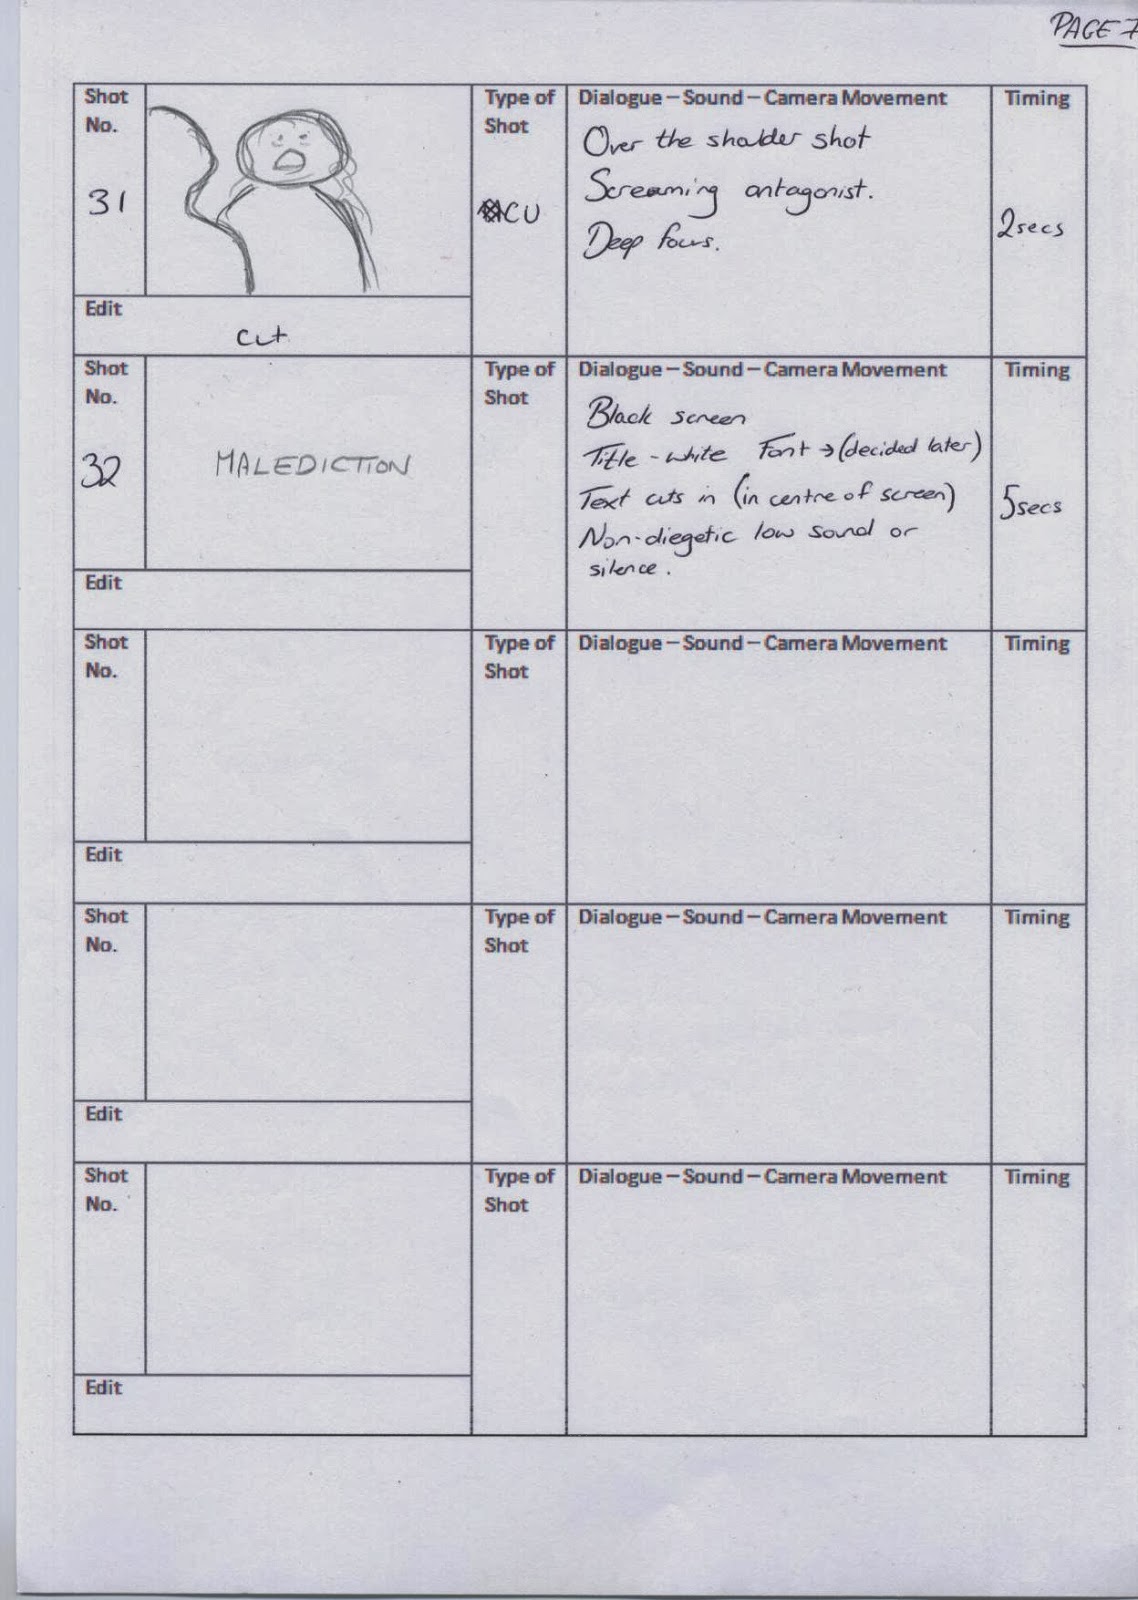 PAGE 7
Shot No.
31
Type of Shot
CU
Dialogue – Sound – Camera Movement
Over the sholder shot
Screaming antagonist.
Deep focus.
Timing
2secs
Edit
cut
Shot No.
32
MALEDICTION
Type of Shot
Dialogue – Sound – Camera Movement
Black screen
Title - white Font → (decided later)
Text cuts in (in centre of screen)
Non-diegetic low sound or
silence.
Timing
5secs
Edit
Shot No.
Type of Shot
Dialogue – Sound – Camera Movement
Timing
Edit
Shot No.
Type of Shot
Dialogue – Sound – Camera Movement
Timing
Edit
Shot No.
Type of Shot
Dialogue – Sound – Camera Movement
Timing
Edit